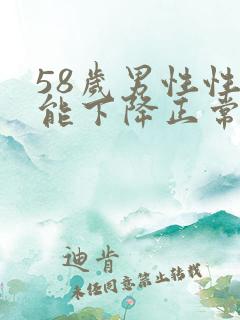 58歲男性性
能下降正常
迪肯
未经同意禁止转载